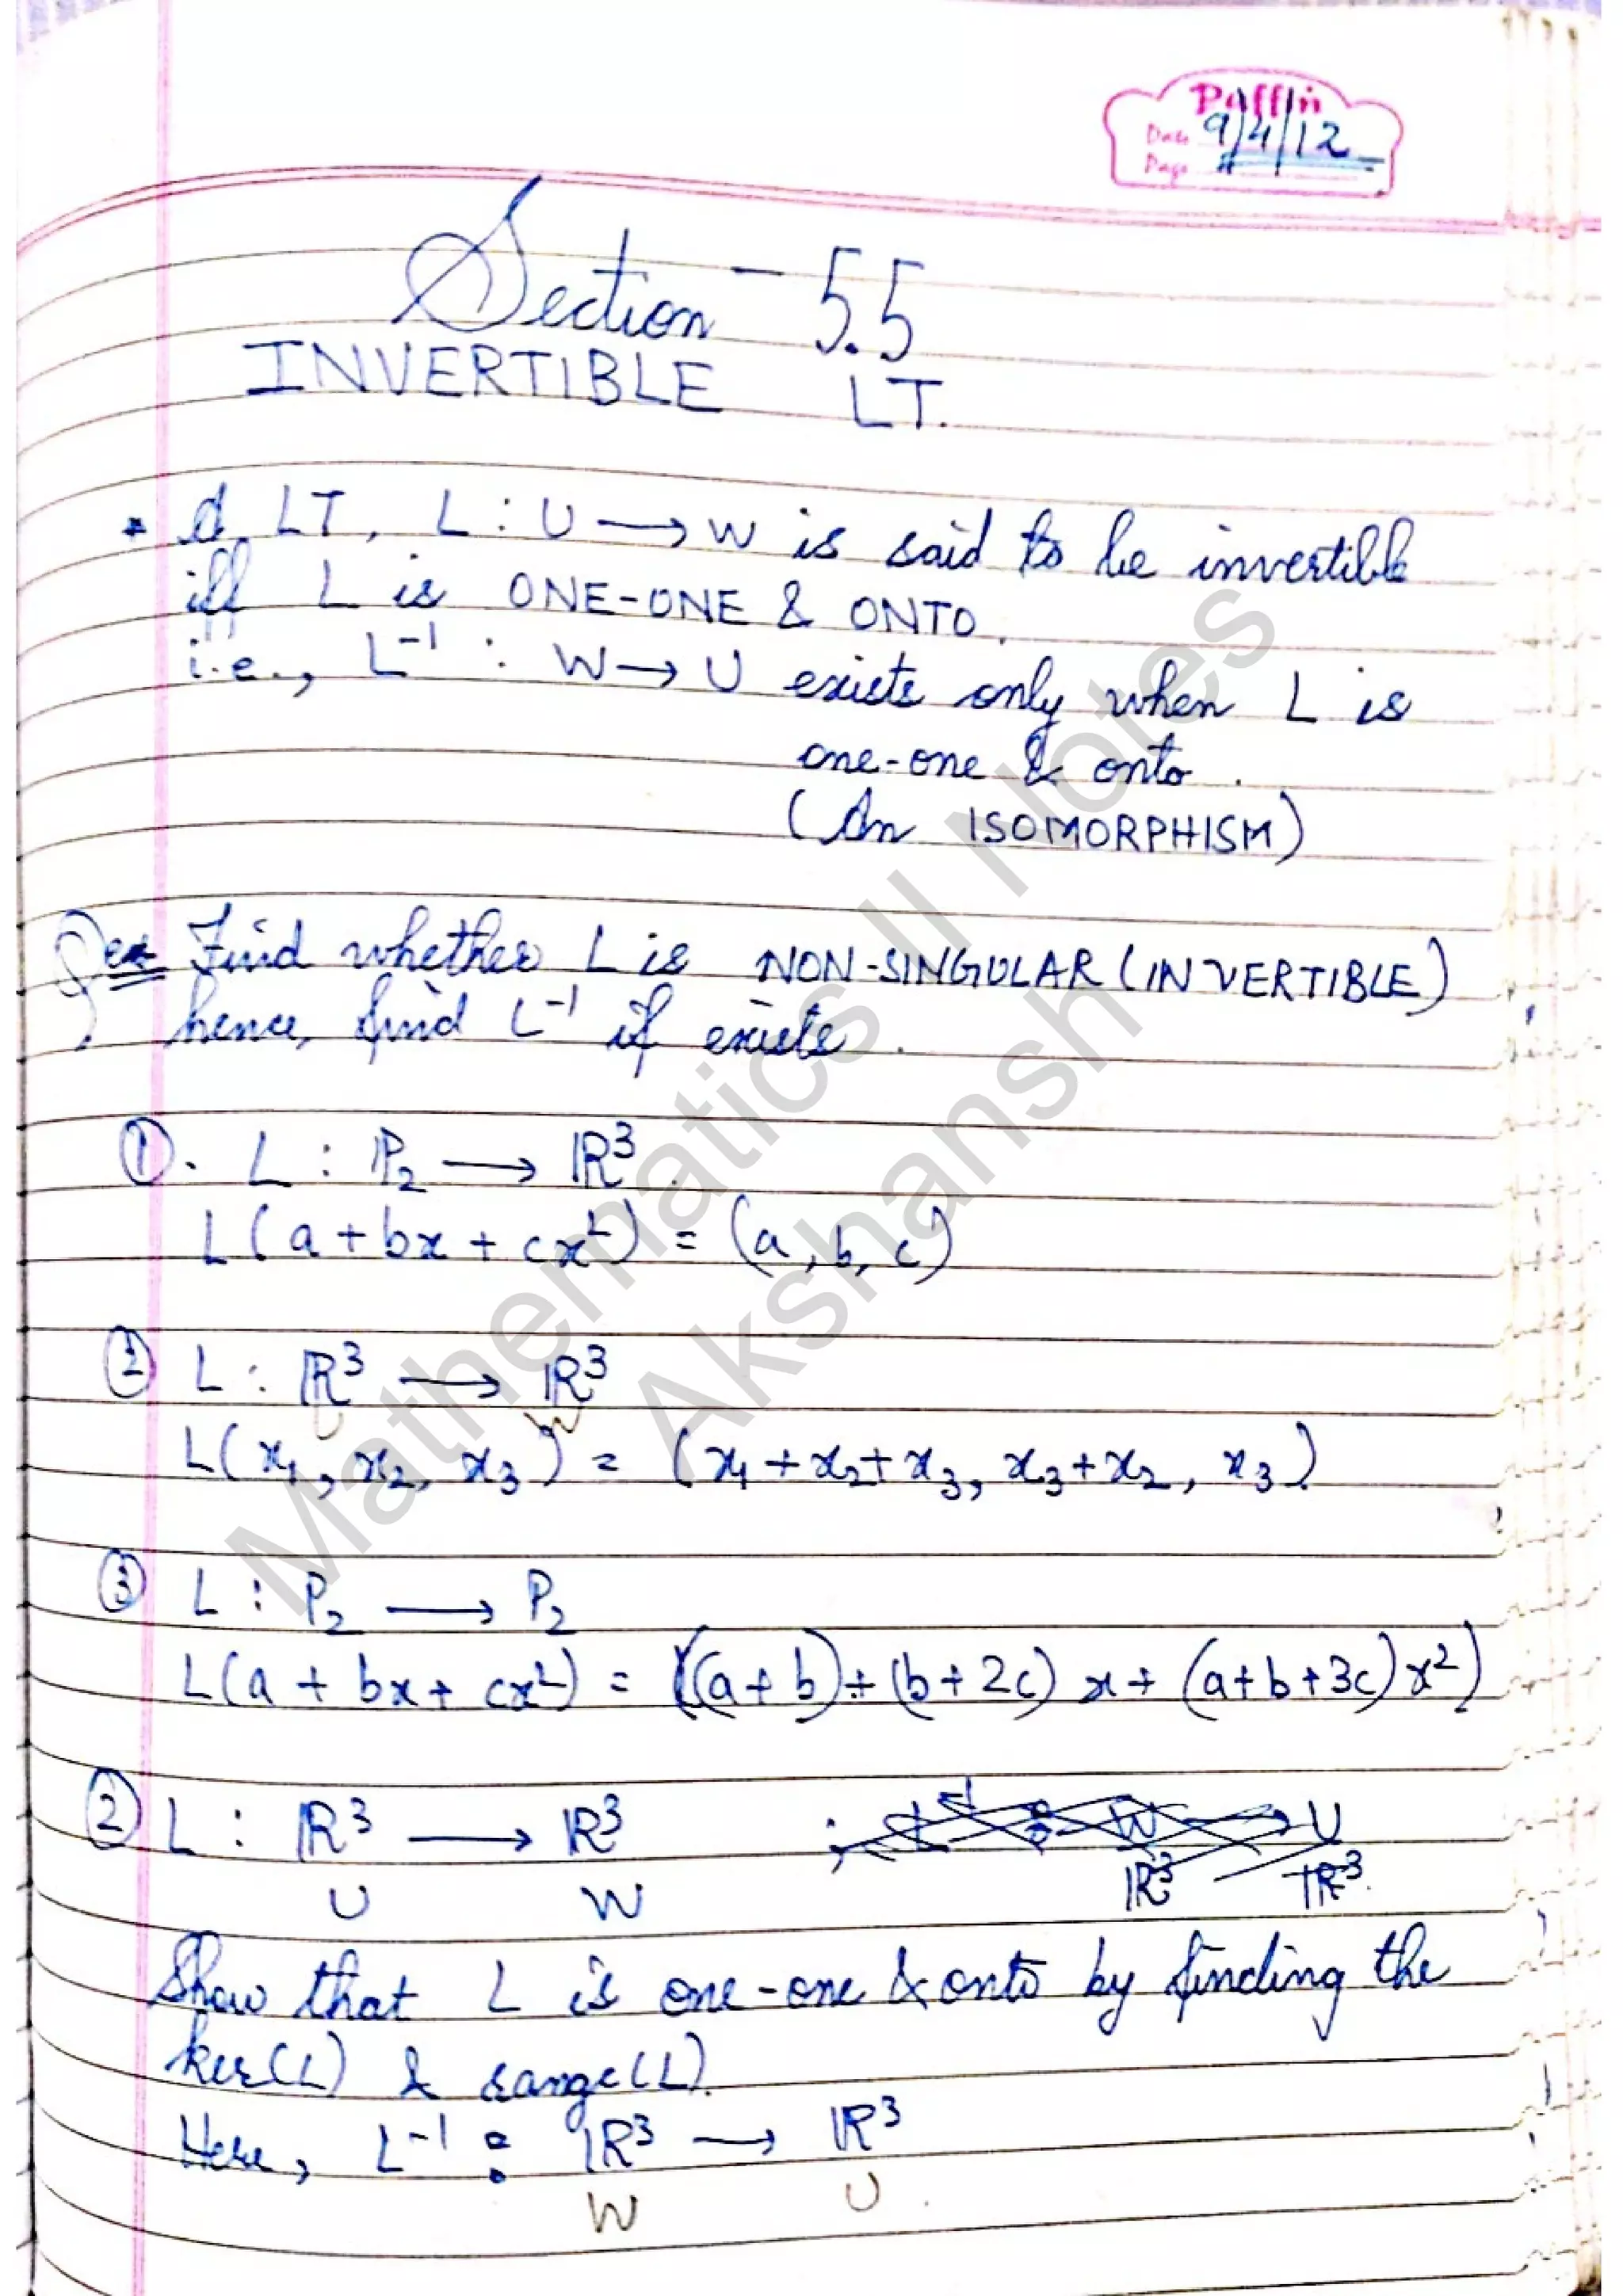 Paffin
Date 9/4/12
Page
Section - 5.5
INVERTIBLE LT.
• A LT, L : U → W is said to be invertible
iff L is ONE-ONE & ONTO.
i.e., L⁻¹ : W → U exists only when L is
one-one & onto.
(An ISOMORPHISM)
Ex Find whether L is NON-SINGULAR (INVERTIBLE)
hence, find L⁻¹ if exists.
①. L : P₂ → ℝ³.
L(a + bx + cx²) = (a, b, c)
② L : ℝ³ → ℝ³
U W
L(x₁, x₂, x₃) = (x₁ + x₂ + x₃, x₃ + x₂, x₃)
③ L : P₂ → P₂
L(a + bx + cx²) = ((a + b) + (b + 2c) x + (a + b + 3c) x²)
② L : ℝ³ → ℝ³ ; L⁻¹ : W → U
U W ℝ³ ℝ³.
Show that L is one-one & onto by finding the
ker(L) & range(L).
Here, L⁻¹ : ℝ³ → ℝ³
W U.
Mathematics II Notes
Akshansh